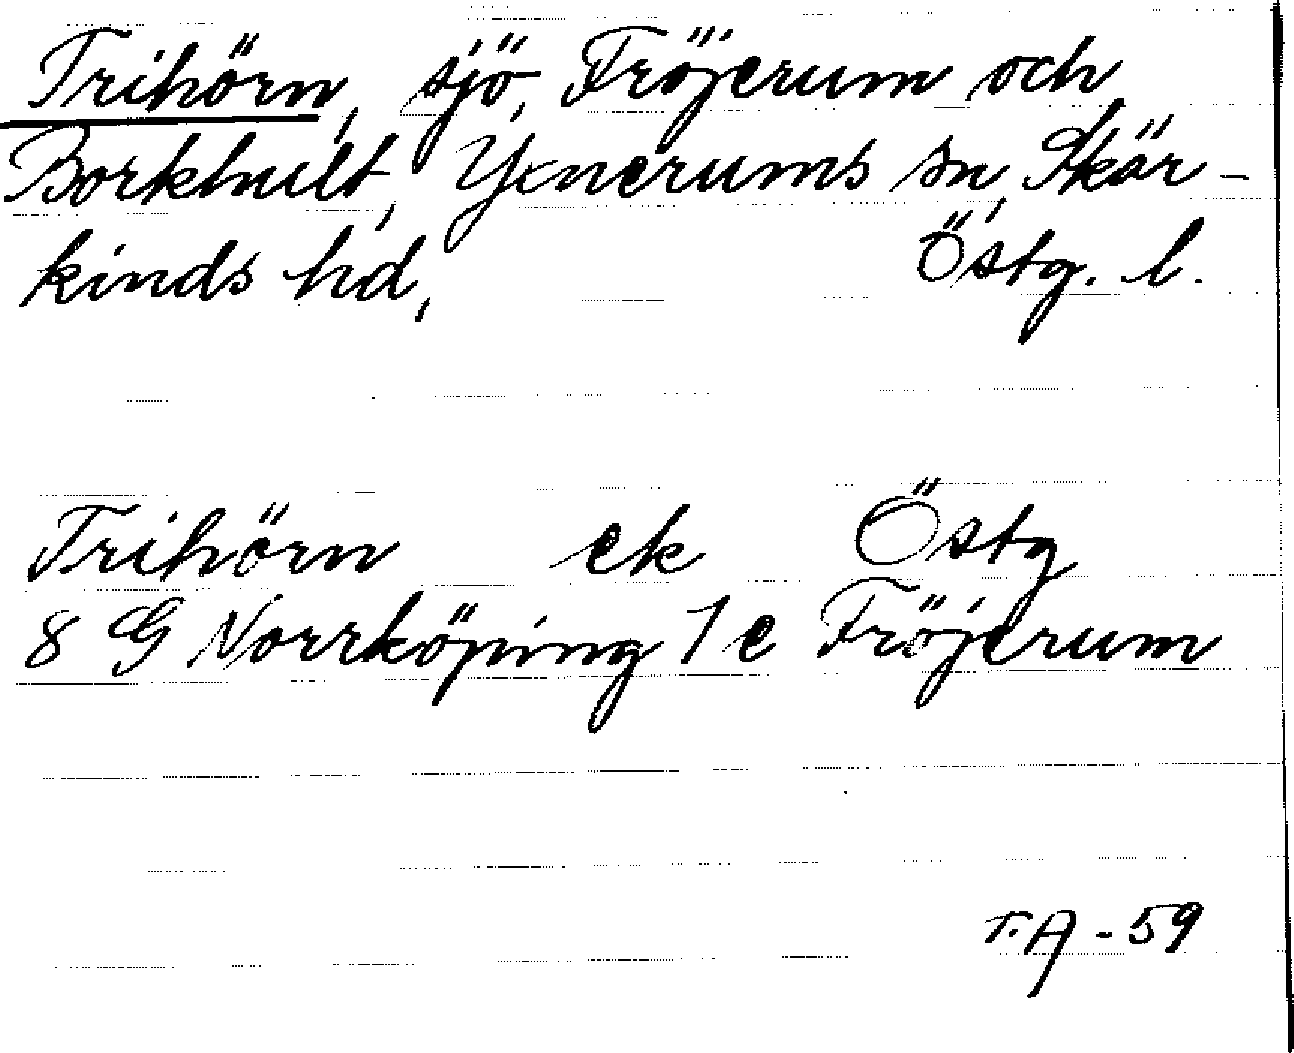 Trihörn, sjö, Fröjerum och
Borkhult, Yxnerums sn, Skär-
kinds hd, Östg. l.
Trihörn ek Östg
8 G Norrköping 1 e Fröjerum
T.A - 59